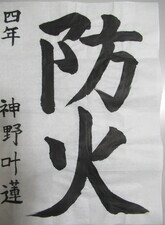 防火
四年
神野叶蓮